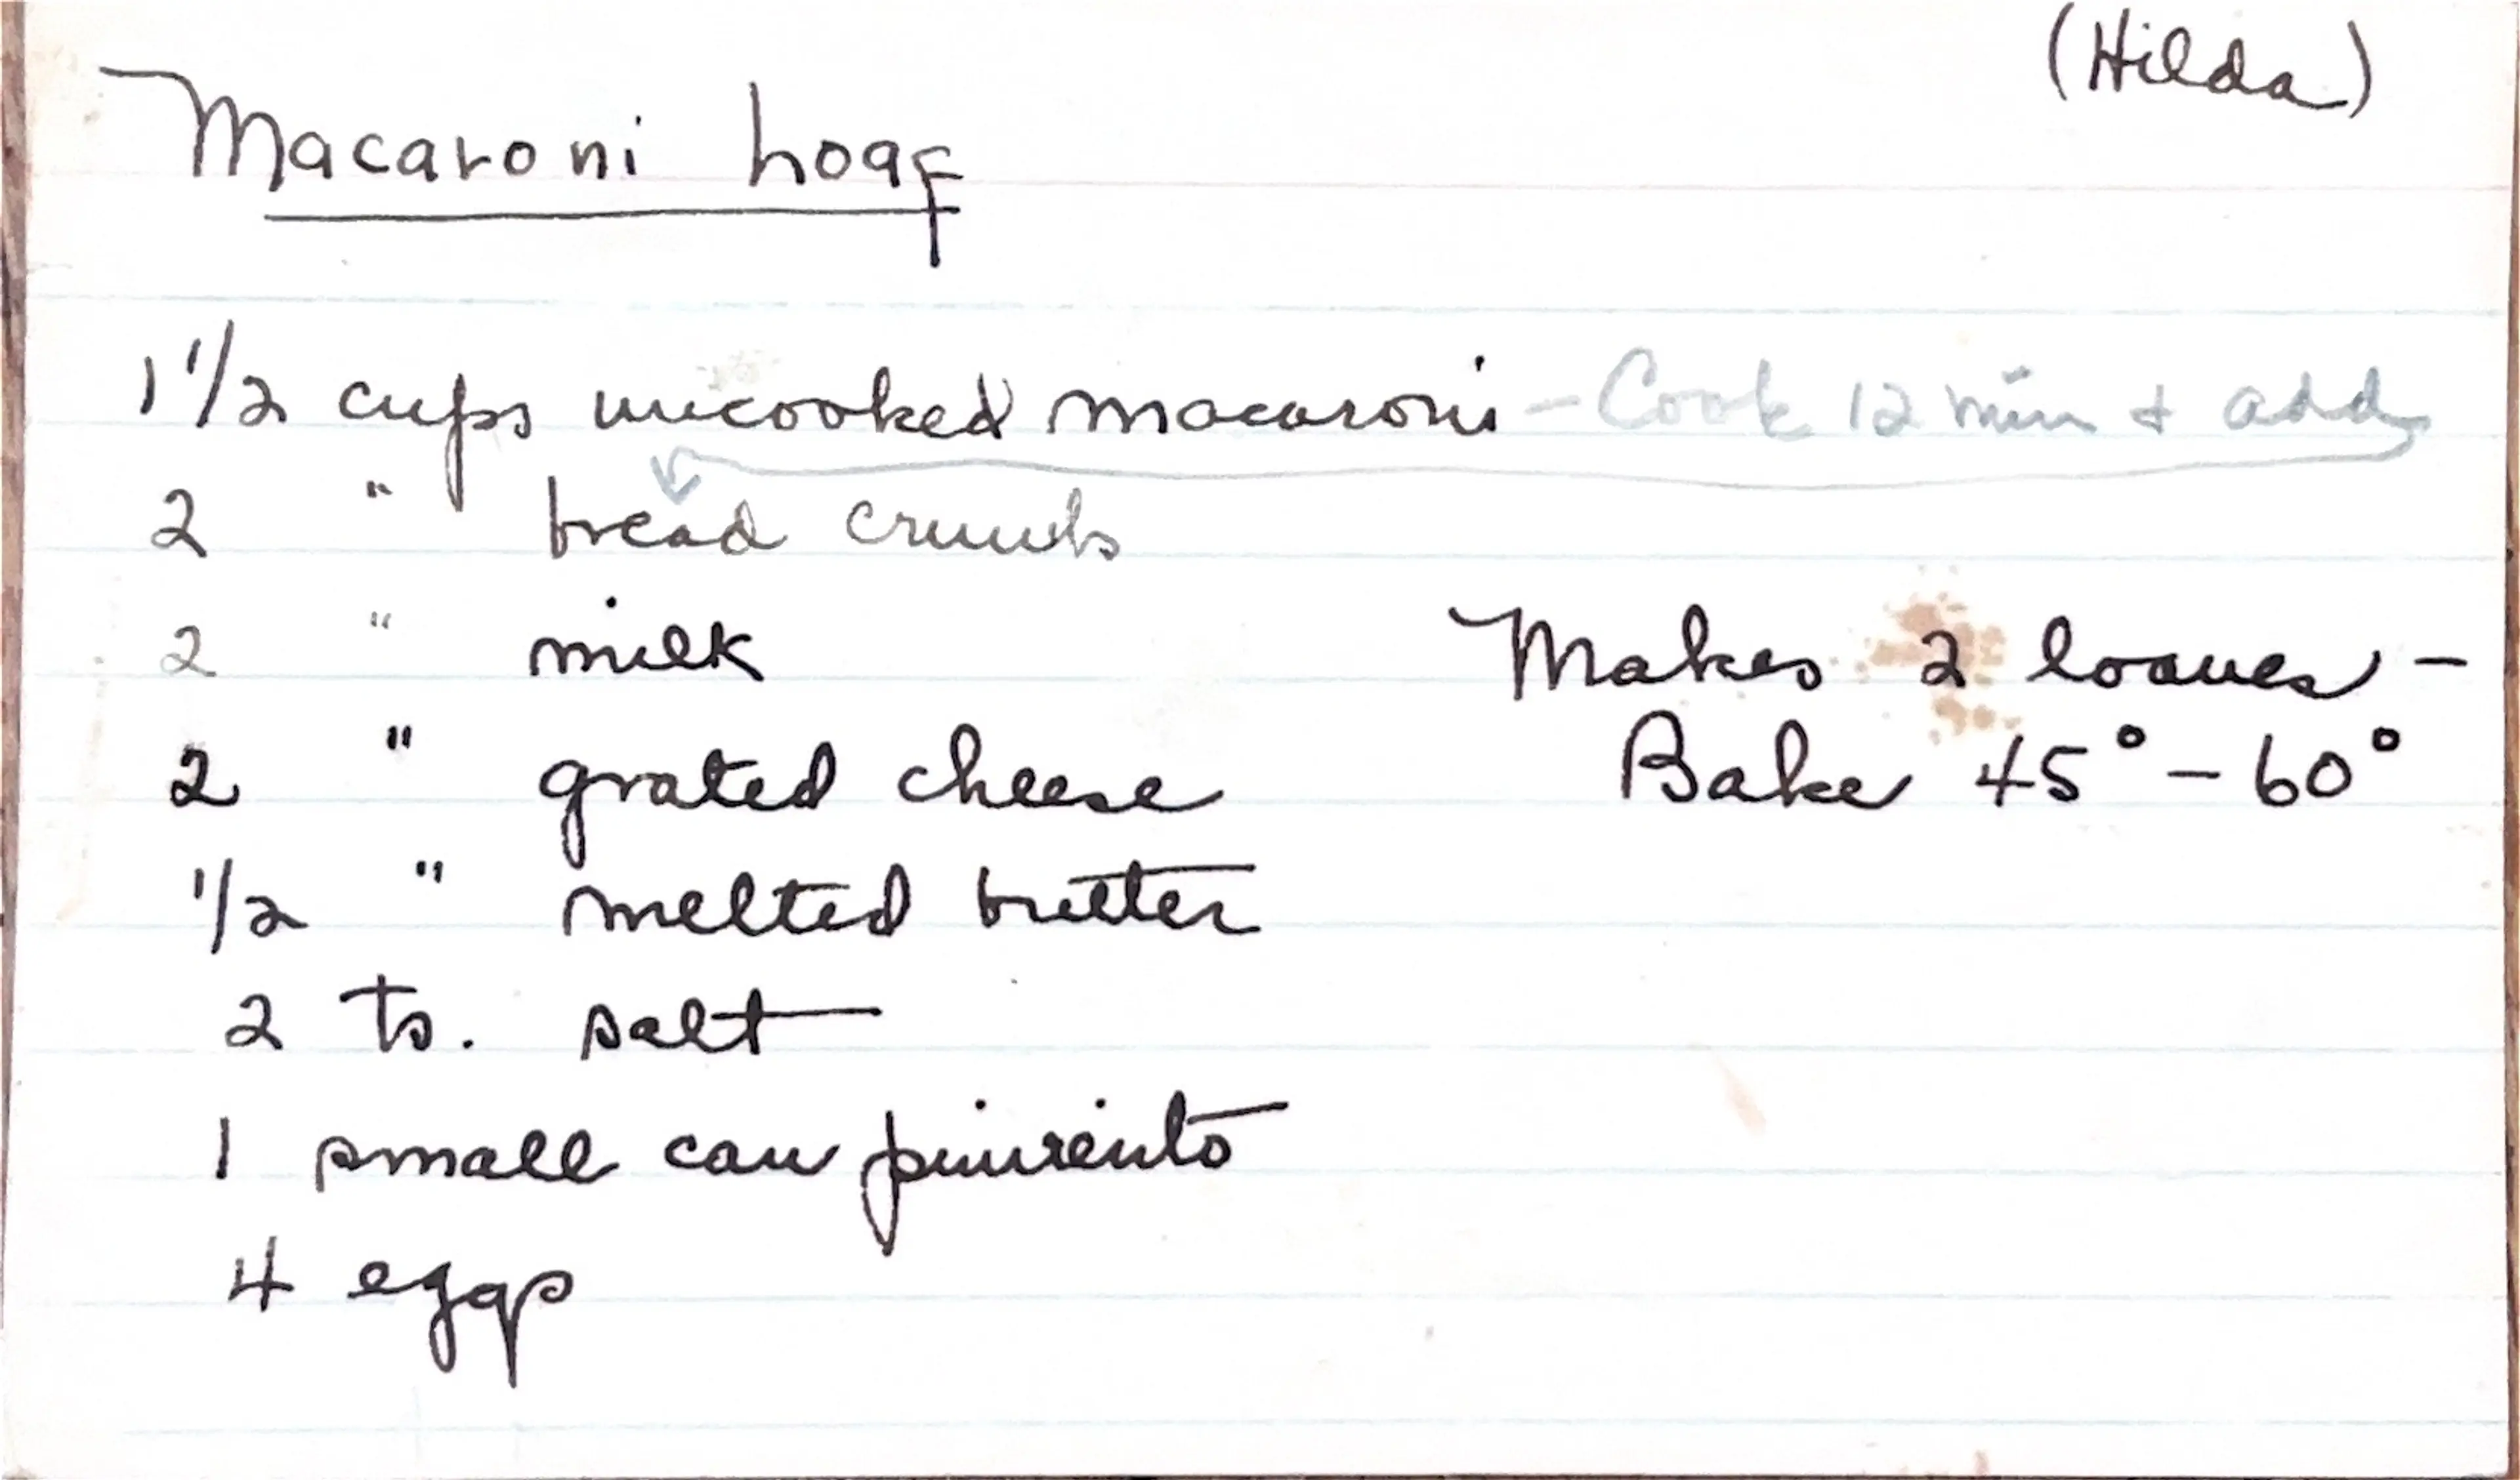 (Hilda)
Macaroni Loaf
1 1/2 cups uncooked macaroni - Cook 12 min + add
2 " bread crumbs
2 " milk
Makes 2 loaves -
2 " grated cheese
Bake 45° - 60°
1/2 " melted butter
2 ts. salt
1 small can pimiento
4 eggs